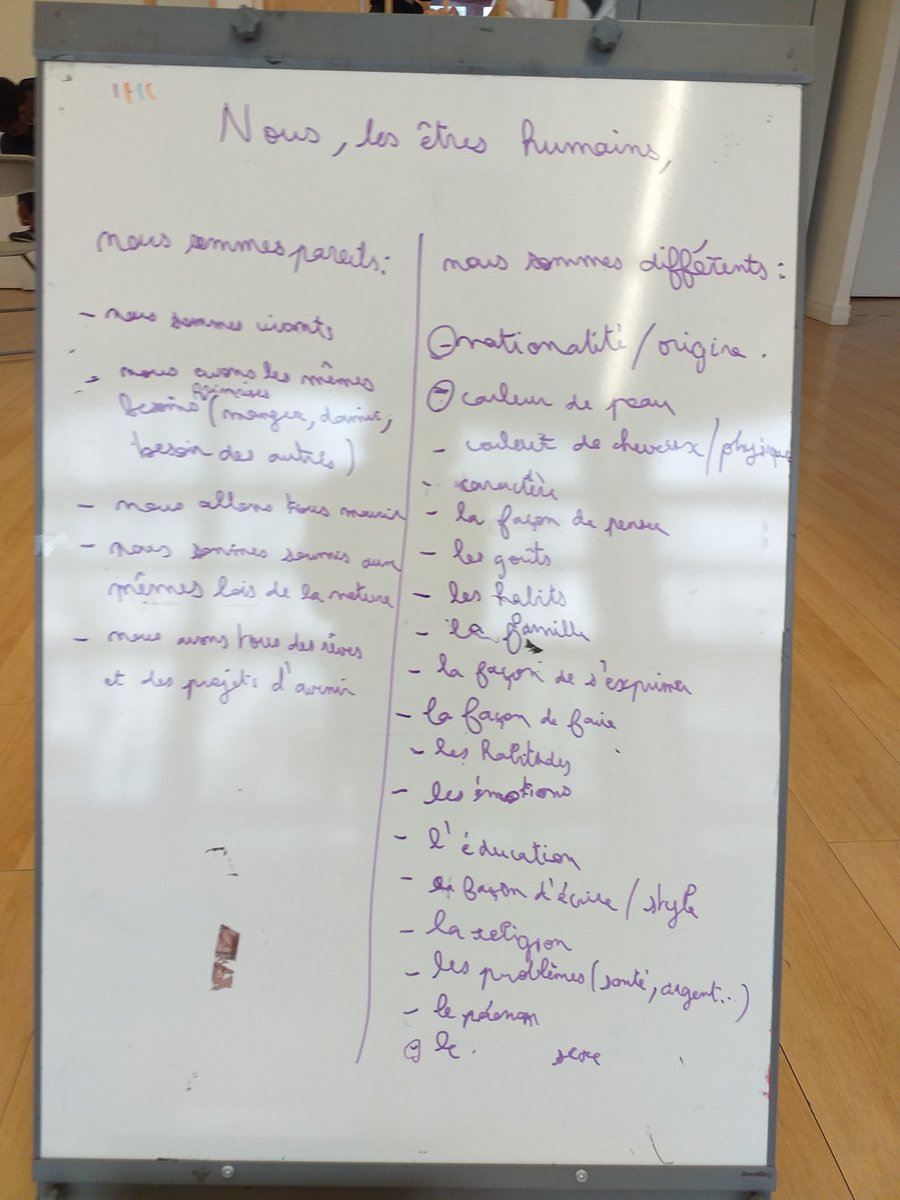 Nous, les êtres humains,
nous sommes pareils:
- nous sommes vivants
- nous avons les mêmes
primaires
besoins (manger, dormir,
besoin des autres)
- nous allons tous mourir
- nous sommes soumis aux
mêmes lois de la nature
- nous avons tous des rêves
et des projets d'avenir
nous sommes différents:
- nationalité / origine.
- couleur de peau
- couleur de cheveux / physique
- caractère
- la façon de penser
- les goûts
- les habits
- la famille
- la façon de s'exprimer
- la façon de faire
- les habitudes
- les émotions
- l'éducation
- la façon d'écrire / style
- la religion
- les problèmes (santé, argent...)
- le prénom
- le sexe